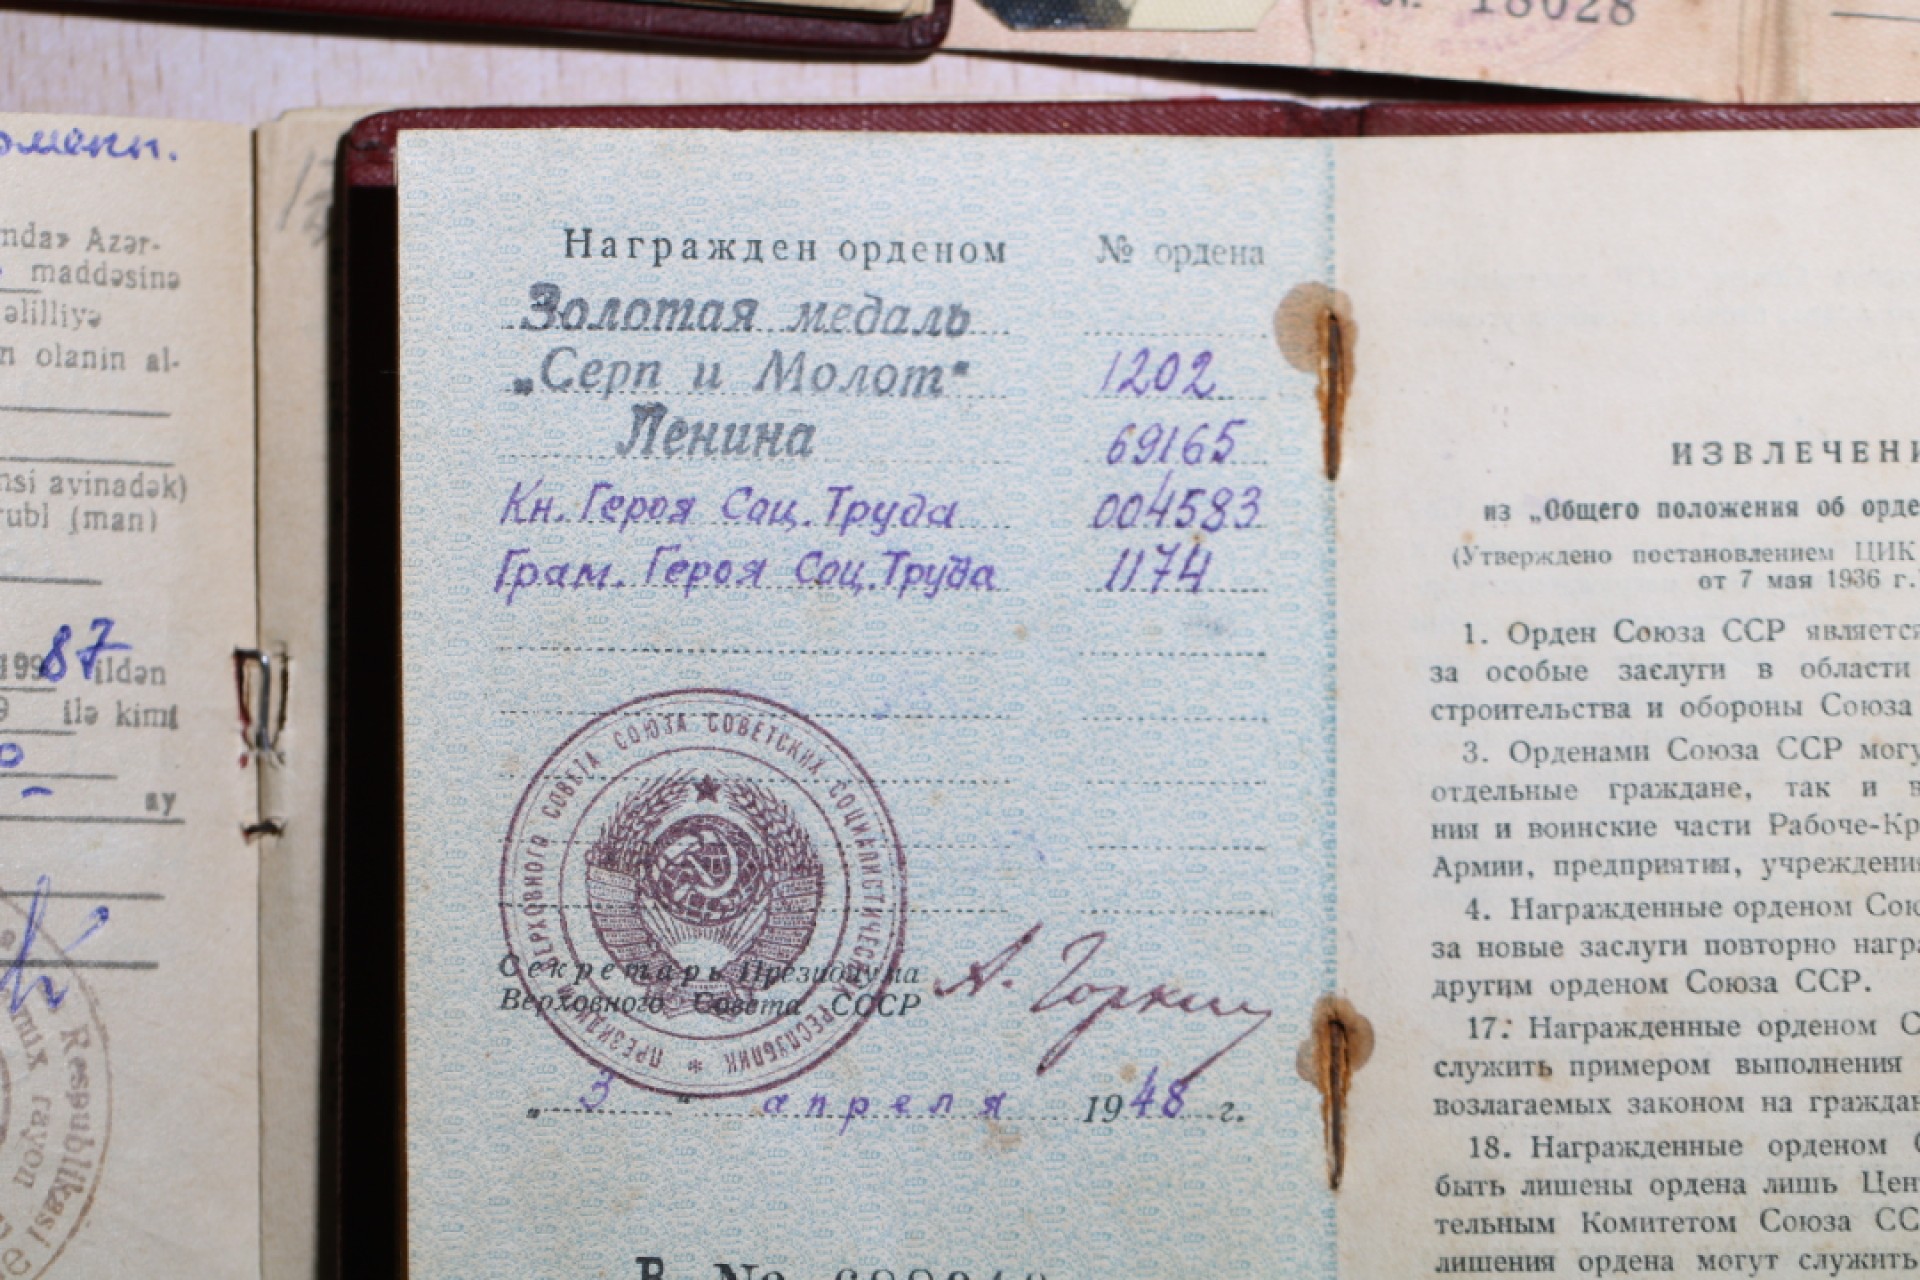 № 18028
оменп.
nda» Azər-
maddəsinə
əlilliyə
n olanin al-
nsi ayinadək)
rubl (man)
199 87 ildən
9 ilə kimi
ay
Respublikasi
rayon
Награжден орденом № ордена
Золотая медаль
„Серп и Молот“ 1202
Ленина 69165
Кн. Героя Соц. Труда 004583
Грам. Героя Соц. Труда 1174
ПРЕЗИДИУМ ВЕРХОВНОГО СОВЕТА СОЮЗА СОВЕТСКИХ СОЦИАЛИСТИЧЕСКИХ РЕСПУБЛИК *
Секретарь Президиума
Верховного Совета СССР А. Горкин
„ 3 “ апреля 1948 г.
ИЗВЛЕЧЕНИ
из „Общего положения об орде
(Утверждено постановлением ЦИК
от 7 мая 1936 г.
1. Орден Союза ССР является
за особые заслуги в области
строительства и обороны Союза
3. Орденами Союза ССР могу
отдельные граждане, так и в
ния и воинские части Рабоче-Кр
Армии, предприятия, учреждения
4. Награжденные орденом Сою
за новые заслуги повторно награ
другим орденом Союза ССР.
17. Награжденные орденом С
служить примером выполнения
возлагаемых законом на граждан
18. Награжденные орденом С
быть лишены ордена лишь Цент
тельным Комитетом Союза СС
лишения ордена могут служить